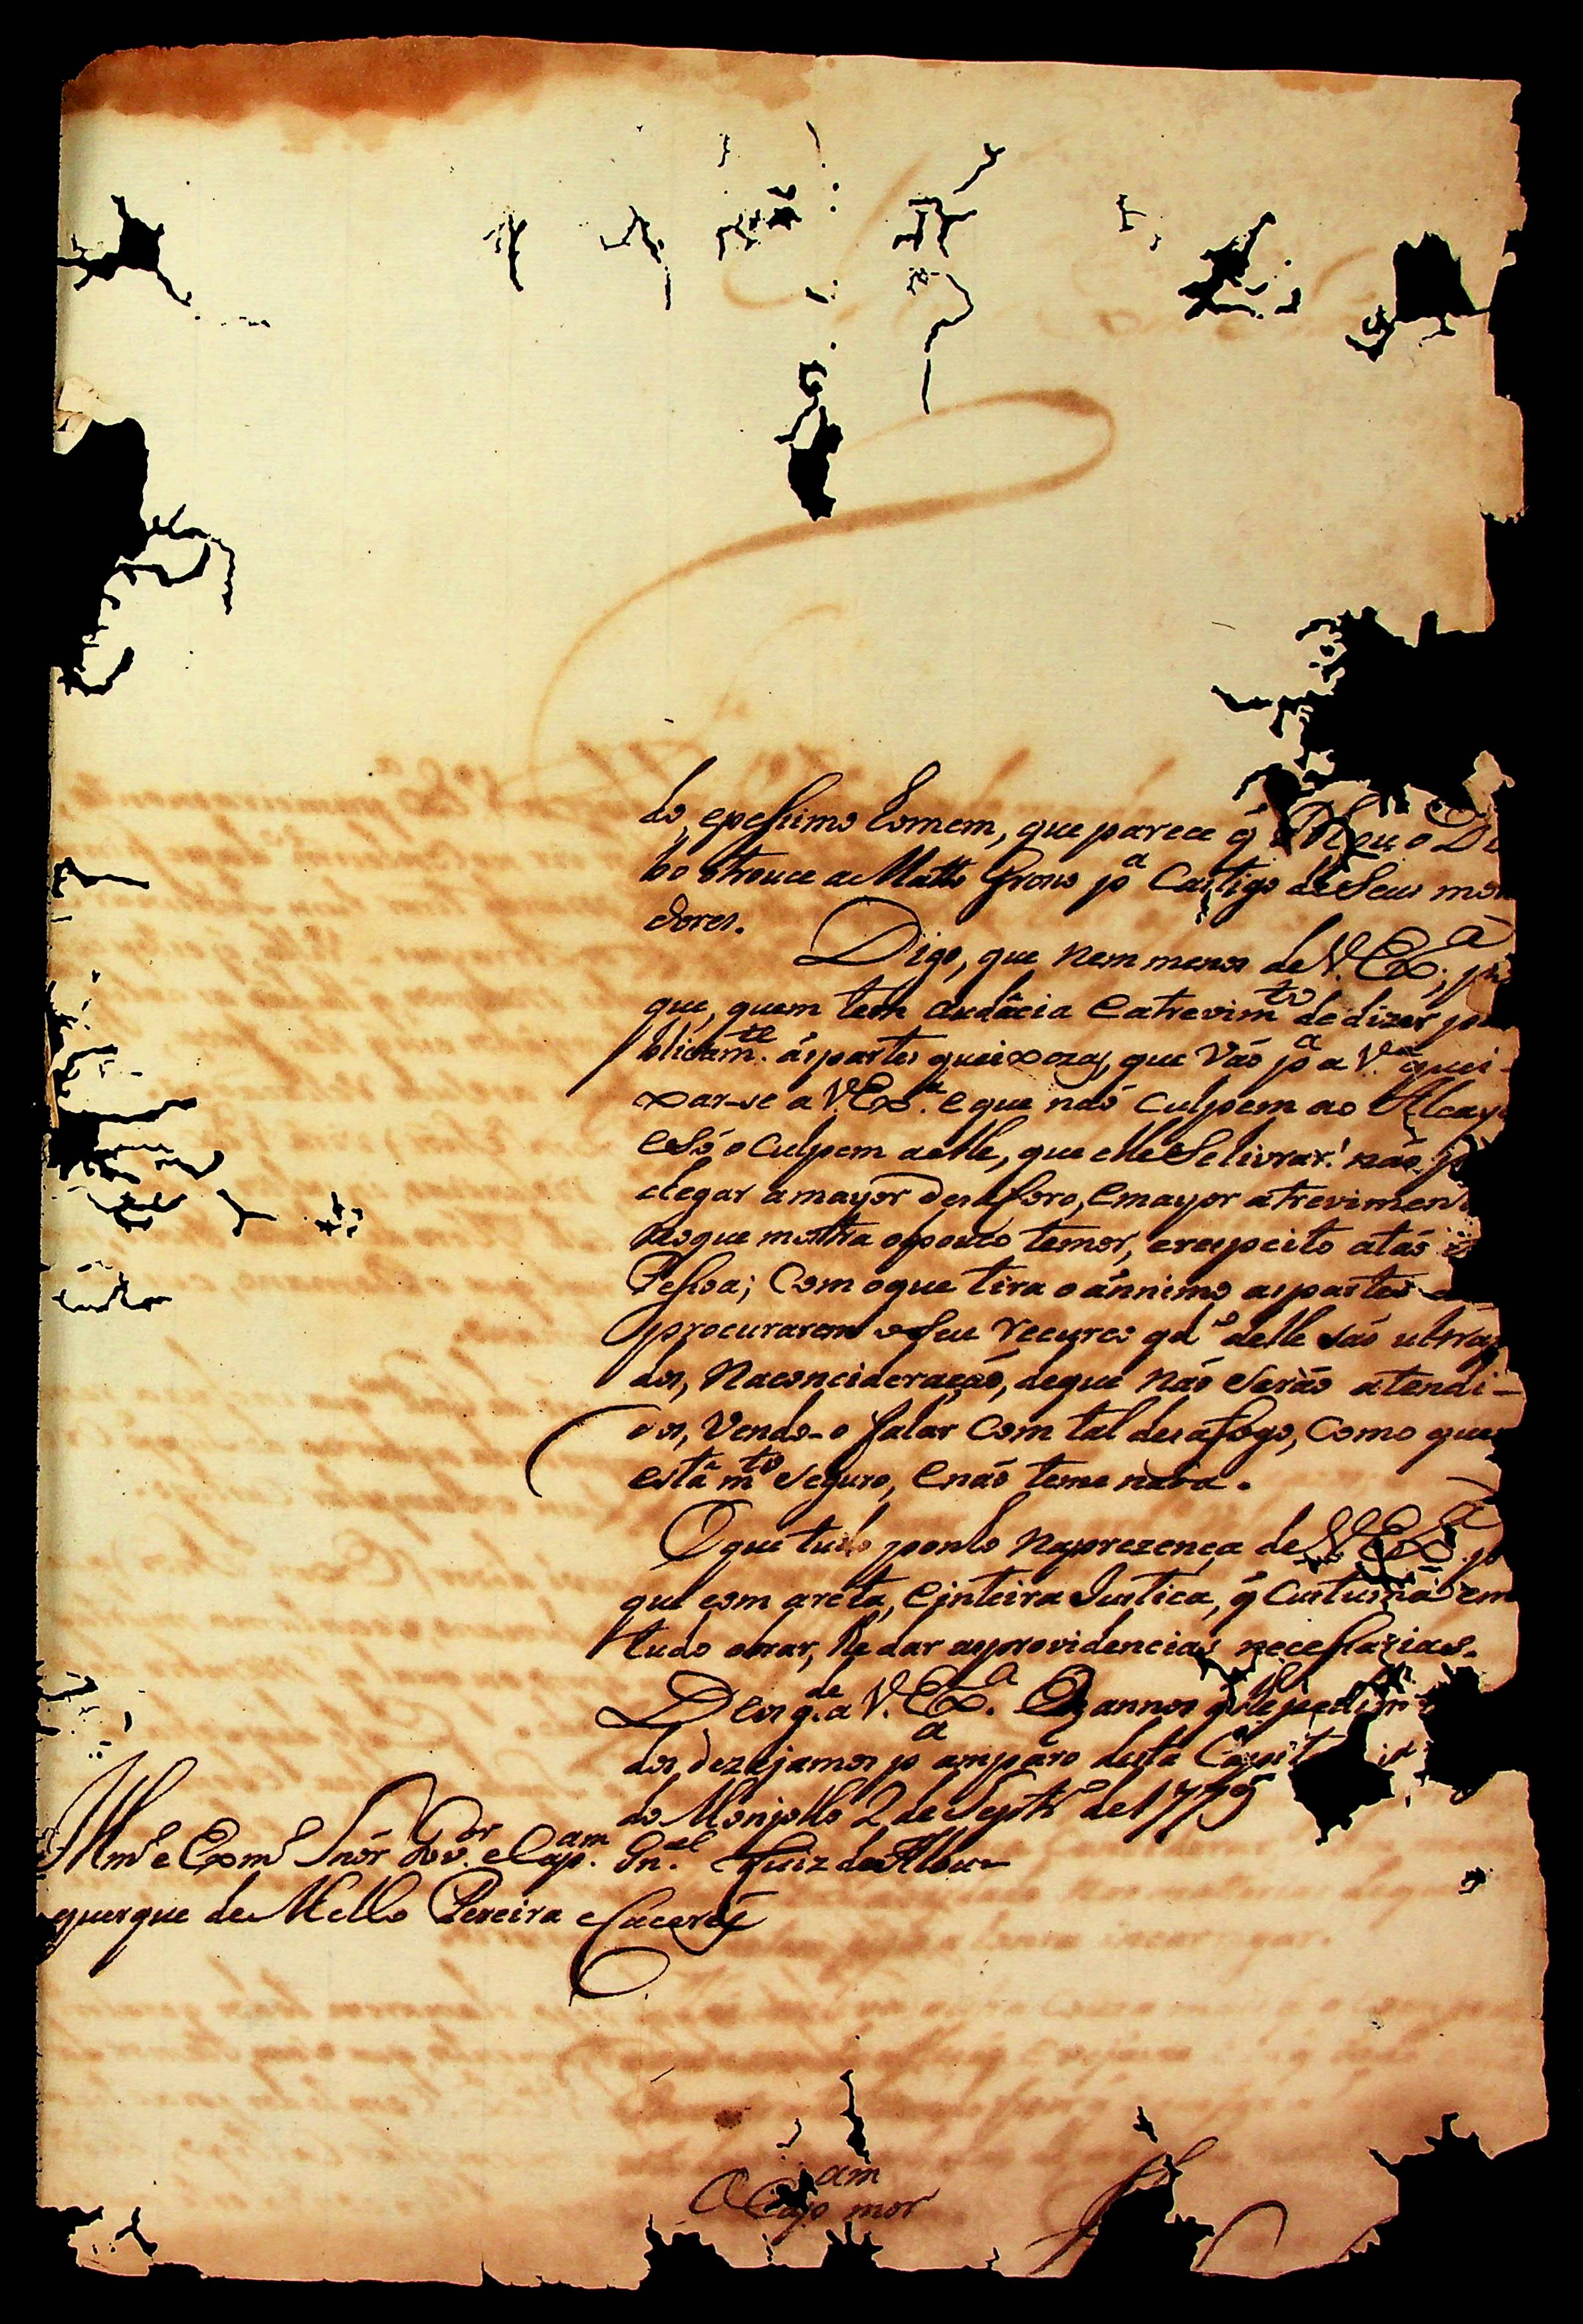 do, epessimo homem, que parece q̃ o
bo otrouce a Matto Groso pª Castigo de Seus mo
dores.
Digo, que nem menos de V. Exª; p
que, quem tem audácia e atrevimto de dizer pu
blicamte. ás partes queixozas, que vão pª a Vª quei-
xar-se a V. Exª. e que não culpem ao Alcay
e só o culpem a elle, que elle Se livrará não p
chegar a mayor desaforo, e mayor atrevimen
no que mostra o pouco temor, e respeito a tão
Pessoa; Com o que tira o ánnimo as partes
procurarem o Seu recurço qdº delle são ultraj
dos, Naconcideração, de que não Serão atendi-
dos, Vendo-o falar Com tal desafogo, Como quem
está mto Seguro, e não teme nada.
O que tudo ponho Naprezença de V. Exª p
que com a reta, e inteira Justiça, q̃ Custuma em
tudo obrar, lhe dar as providencias necessarias.
Deos gde. a V. Exª. Os annos q̃ lhe pedim
dos dezejamos pª ampáro desta Capit
do Monjollo 2 de Septrº de 1779
Illmº e Exmº Snór Govor. e Capam. Gnal. Luiz de Albu-
querque de Mello Pereira e Caceres
O Capam mor